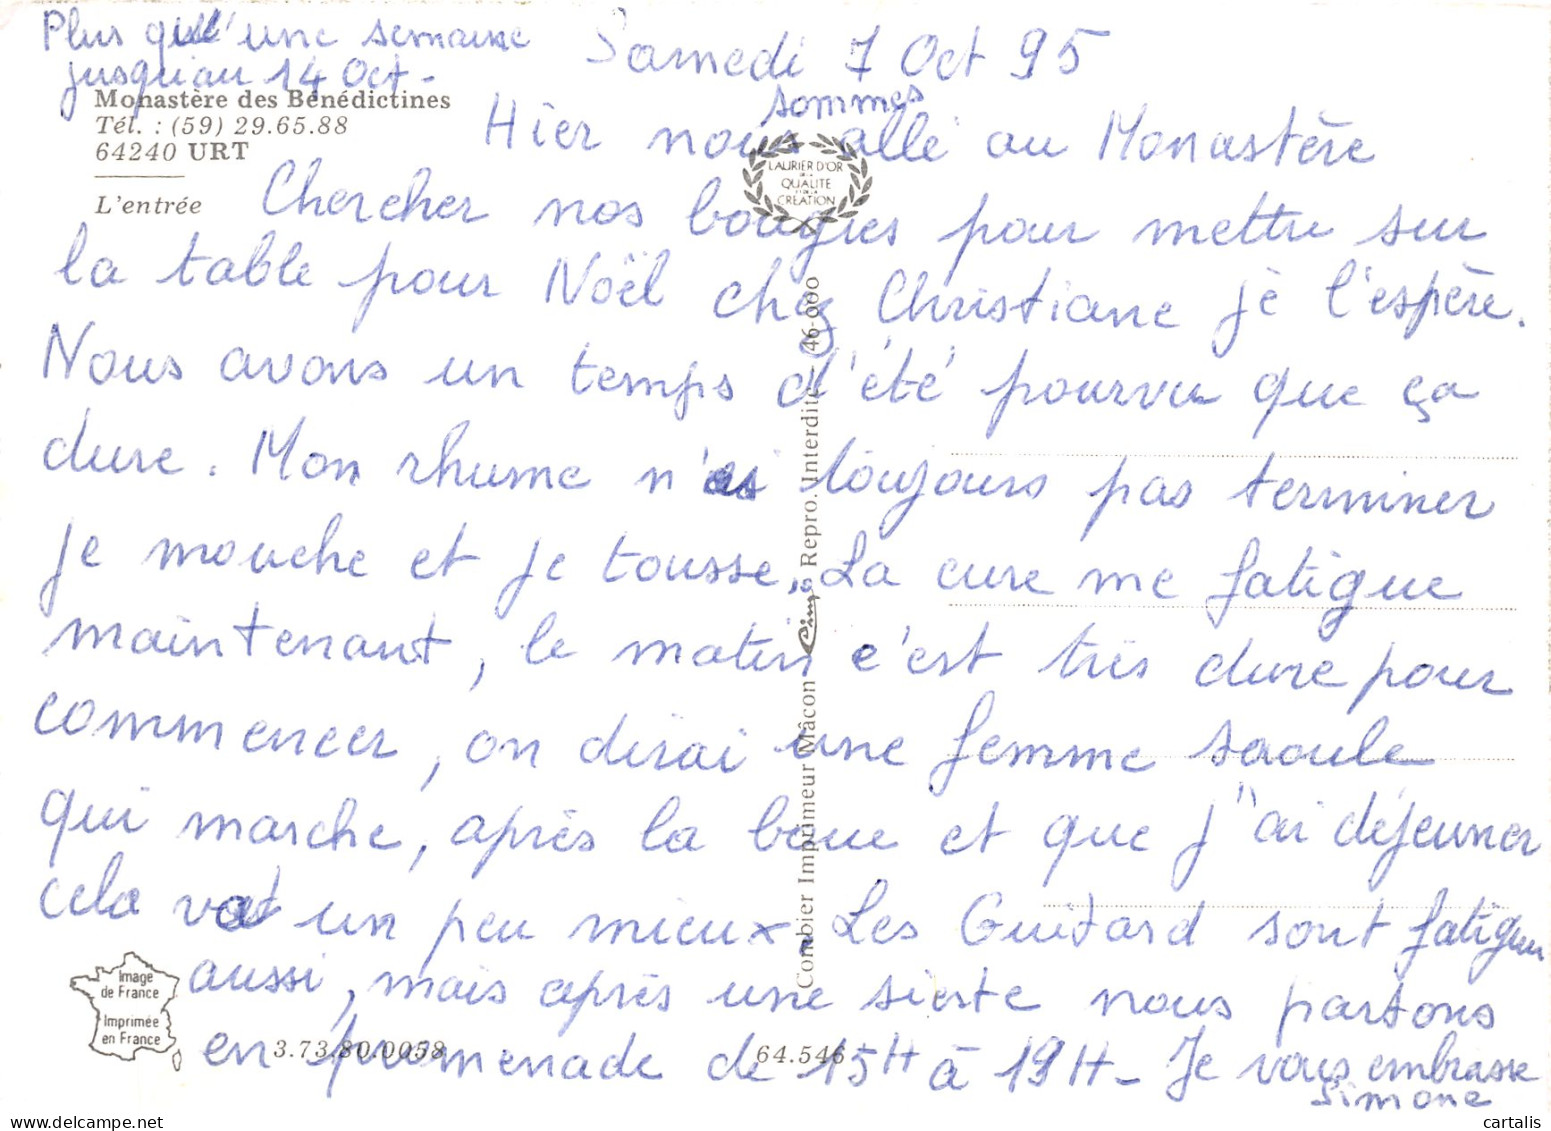 Plus qu'une semaine
jusqu'au 14 Oct -
Samedi 7 Oct 95
Monastère des Bénédictines
Tél. : (59) 29.65.88
64240 URT
L'entrée
sommes
Hier nous allé au Monastère
LAURIER D'OR
DE LA
QUALITE
ET DE LA
CREATION
Chercher nos bougies pour mettre sur
la table pour Noël chez Christiane je l'espère.
Nous avons un temps d'été pourvu que ça
dure. Mon rhume n'est toujours pas terminer
je mouche et je tousse. La cure me fatigue
maintenant, le matin c'est très dure pour
commencer, on dirai une femme saoule
qui marche, après la boue et que j'ai déjeuner
cela va un peu mieux. Les Guitard sont fatiguer
aussi, mais après une sieste nous partons
en promenade de 15H à 19H - Je vous embrasse
Simone
Combier Imprimeur Mâcon Cim Repro. Interdite - 46-000
Image
de France
Imprimée
en France
3.73.80.0058
64.546